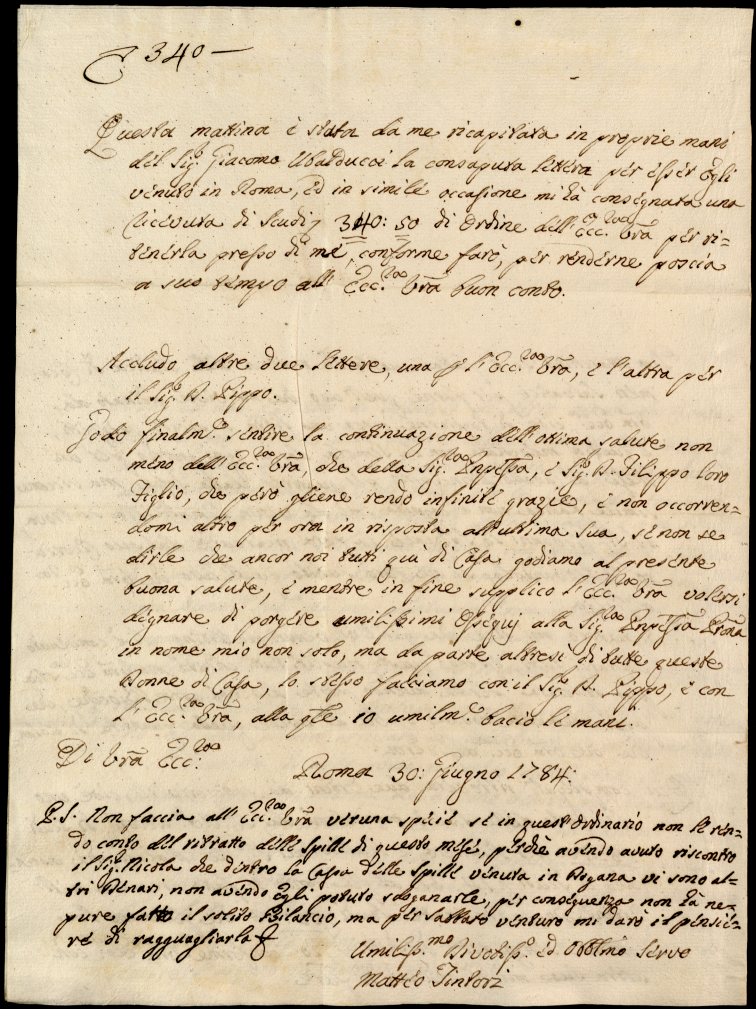 340 —
Questa mattina è stata da me ricapitata in proprie mani
del Sig.r Giacomo Ubalducci la consaputa lettera per esser Egli
venuto in Roma, ed in simile occasione mi hà consegnata una
ricevuta di Scudi 340: 50 di ordine dell'Ecc.za Vrã per ri=
tenerla presso di me, conforme farò, per renderne poscia
a suo tempo all' Ecc.za Vrã buon conto.
Accludo altre due lettere, una p l'Ecc.za Vrã, e l'altra per
il Sig.r D. Pippo.
Godo finalm.e sentire la continuazione dell'ottima salute non
meno dell'Ecc.za Vrã, che della Sig.ra Pnpessa, e Sig.r D. Filippo loro
Figlio, che però gliene rendo infinite grazie, e non occorren=
domi altro per ora in risposta all'ultima sua, se non se
dirle che ancor noi tutti quà di Casa godiamo al presente
buona salute, e mentre in fine supplico l'Ecc.za Vrã volersi
dignare di porgere umilissimi Ossequj alla Sig.ra Pnpessa Prona
in nome mio non solo, ma da parte altresi di tutte queste
Donne di Casa, lo stesso facciamo con il Sig.r D. Pippo, e con
l'Ecc.za Vrã, alla qle io umilm.e bacio le mani.
Di Vrã Ecc.za
Roma 30: Giugno 1784:
P.S. Non faccia all' Ecc.za Vrã veruna specie se in quest'Ordinario non le ren=
do conto del ritratto delle Spille di questo mese, perchè avendo avuto riscontro
il Sig.r Nicola che dentro la Cassa delle Spille venuta in Dogana vi sono al=
tri Denari, non avendo Egli potuto sdoganarle, per conseguenza non hà ne=
pure fatto il solito Bilancio, ma per Sabbato venturo mi darò il pensie=
re di ragguagliarla
Umiliss.mo Divotiss.o ed Obblmo Servo
Matteo Tintori